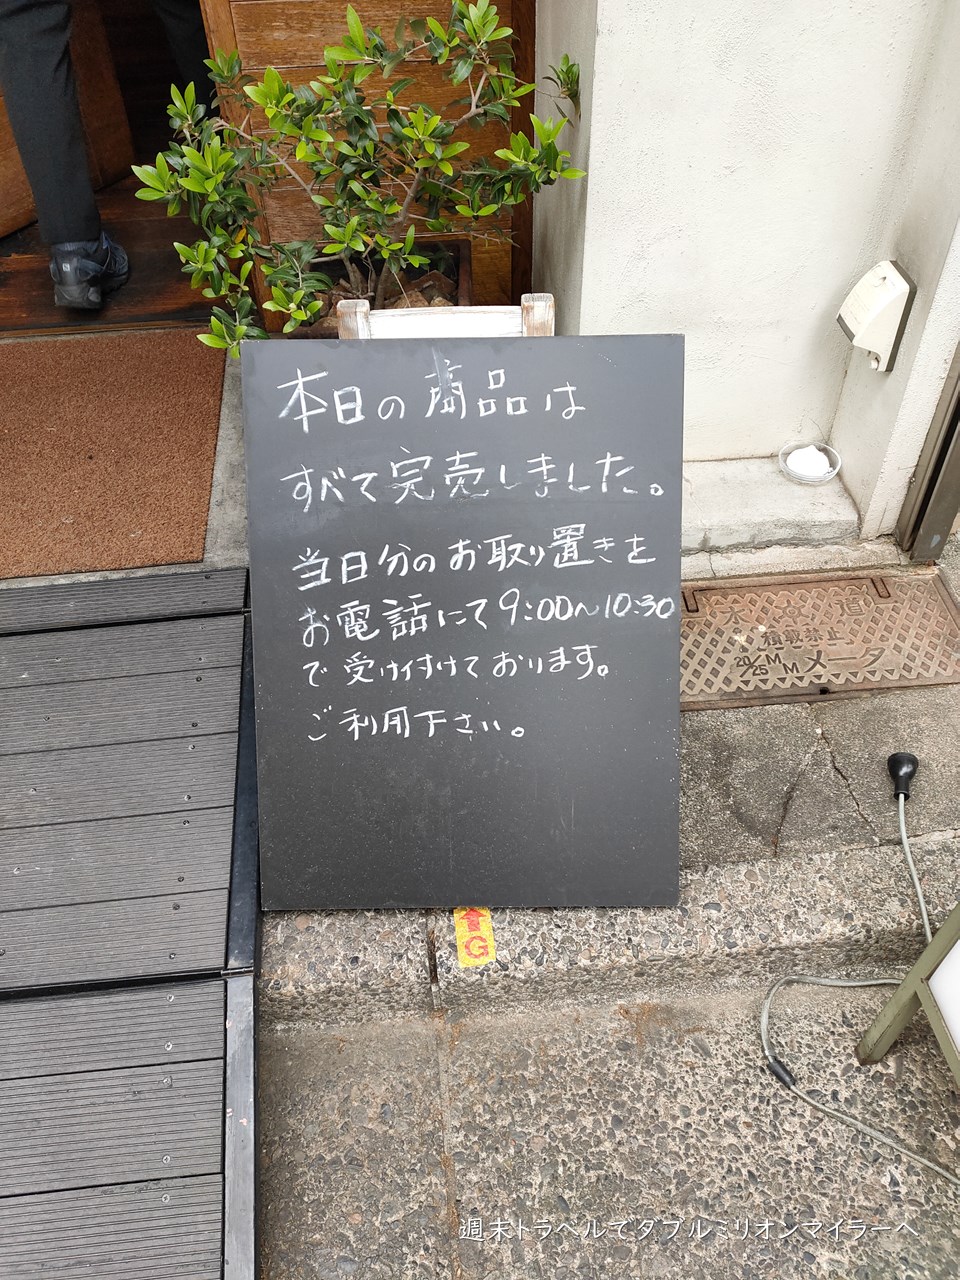 本日の商品は
すべて完売しました。
当日分のお取り置きを
お電話にて9:00〜10:30
で受け付けております。
ご利用下さい。
水道
積載禁止
20/25MM メータ
G
週末トラベルでダブルミリオンマイラーへ